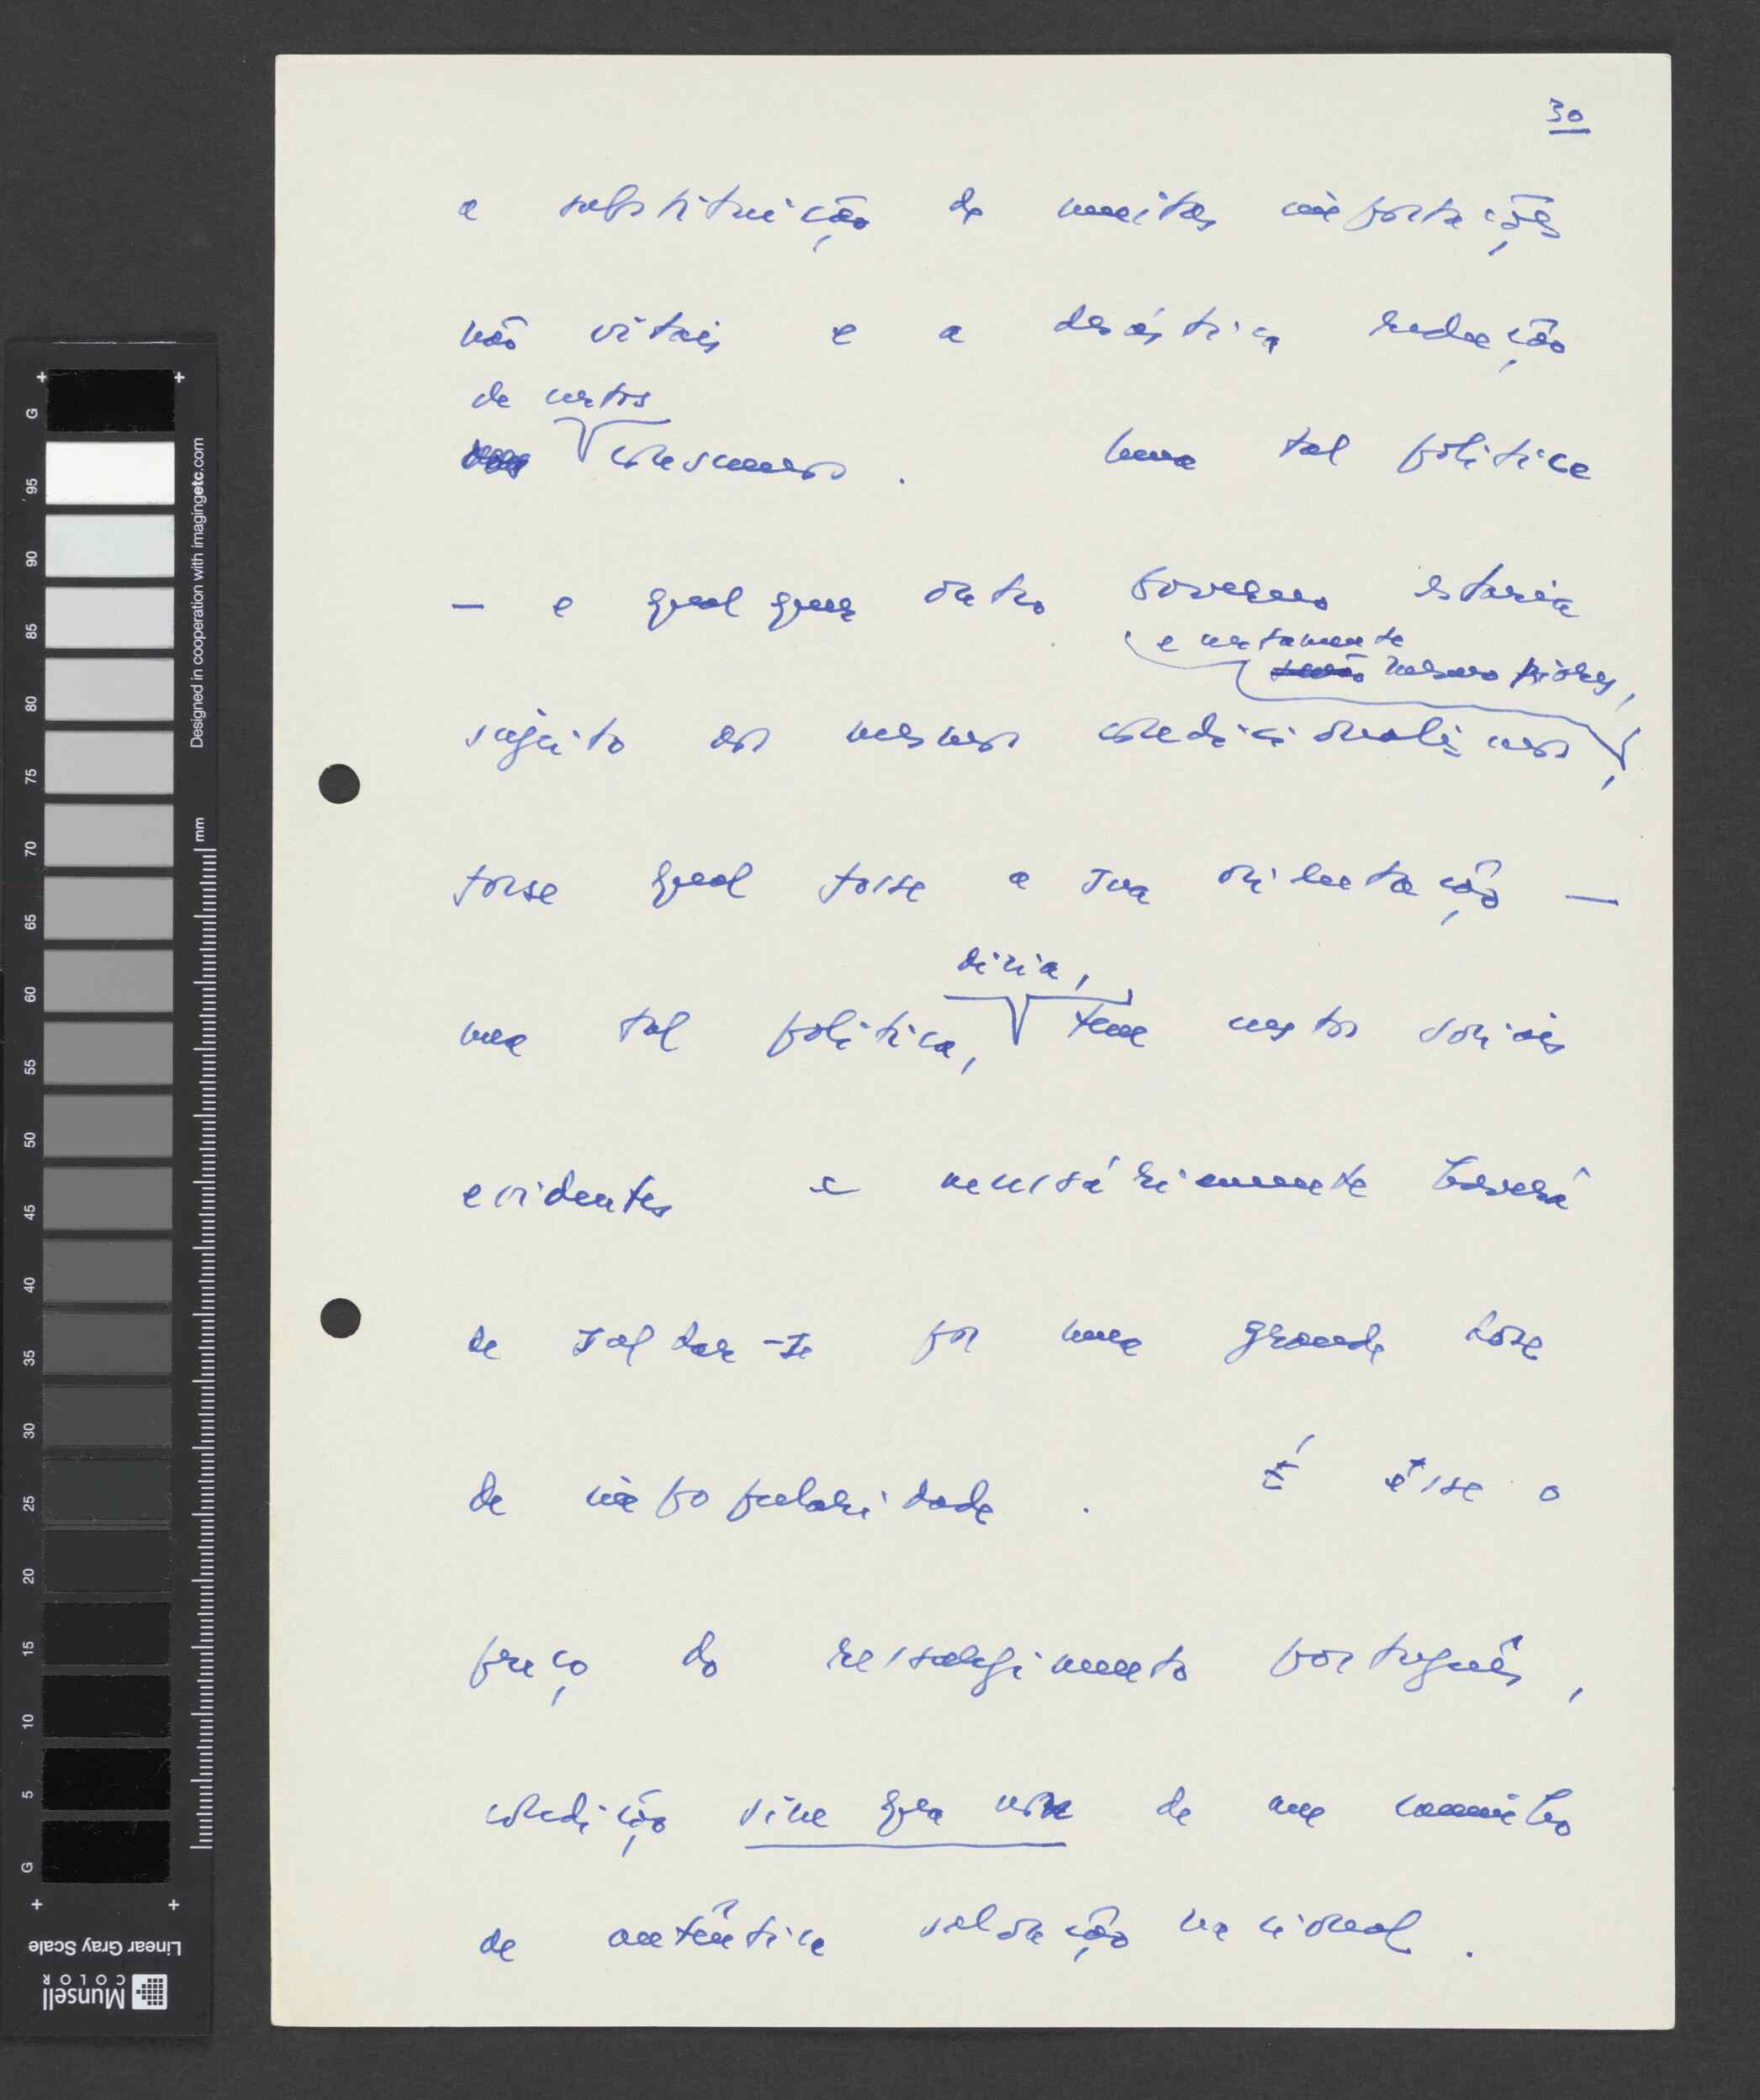 30
a substituição de muitas importações
não vitais e a drástica redução
de certos
consumos. Uma tal política
— e qualquer outro Governo estaria
e certamente
mesmo piores,
sujeito aos mesmos condicionalismos,
fosse qual fosse a sua orientação —
uma tal política,
diria,
tem custos sociais
evidentes e necessàriamente haverá
de saldar-se por uma grande dose
de impopularidade. É êsse o
preço do ressurgimento português,
condição sine qua non de um caminho
de autêntica salvação nacional.
G
95
90
85
80
75
70
65
60
55
50
45
40
35
30
25
20
15
10
5
G
Designed in cooperation with imagingetc.com
mm
Linear Gray Scale
Munsell
COLOR